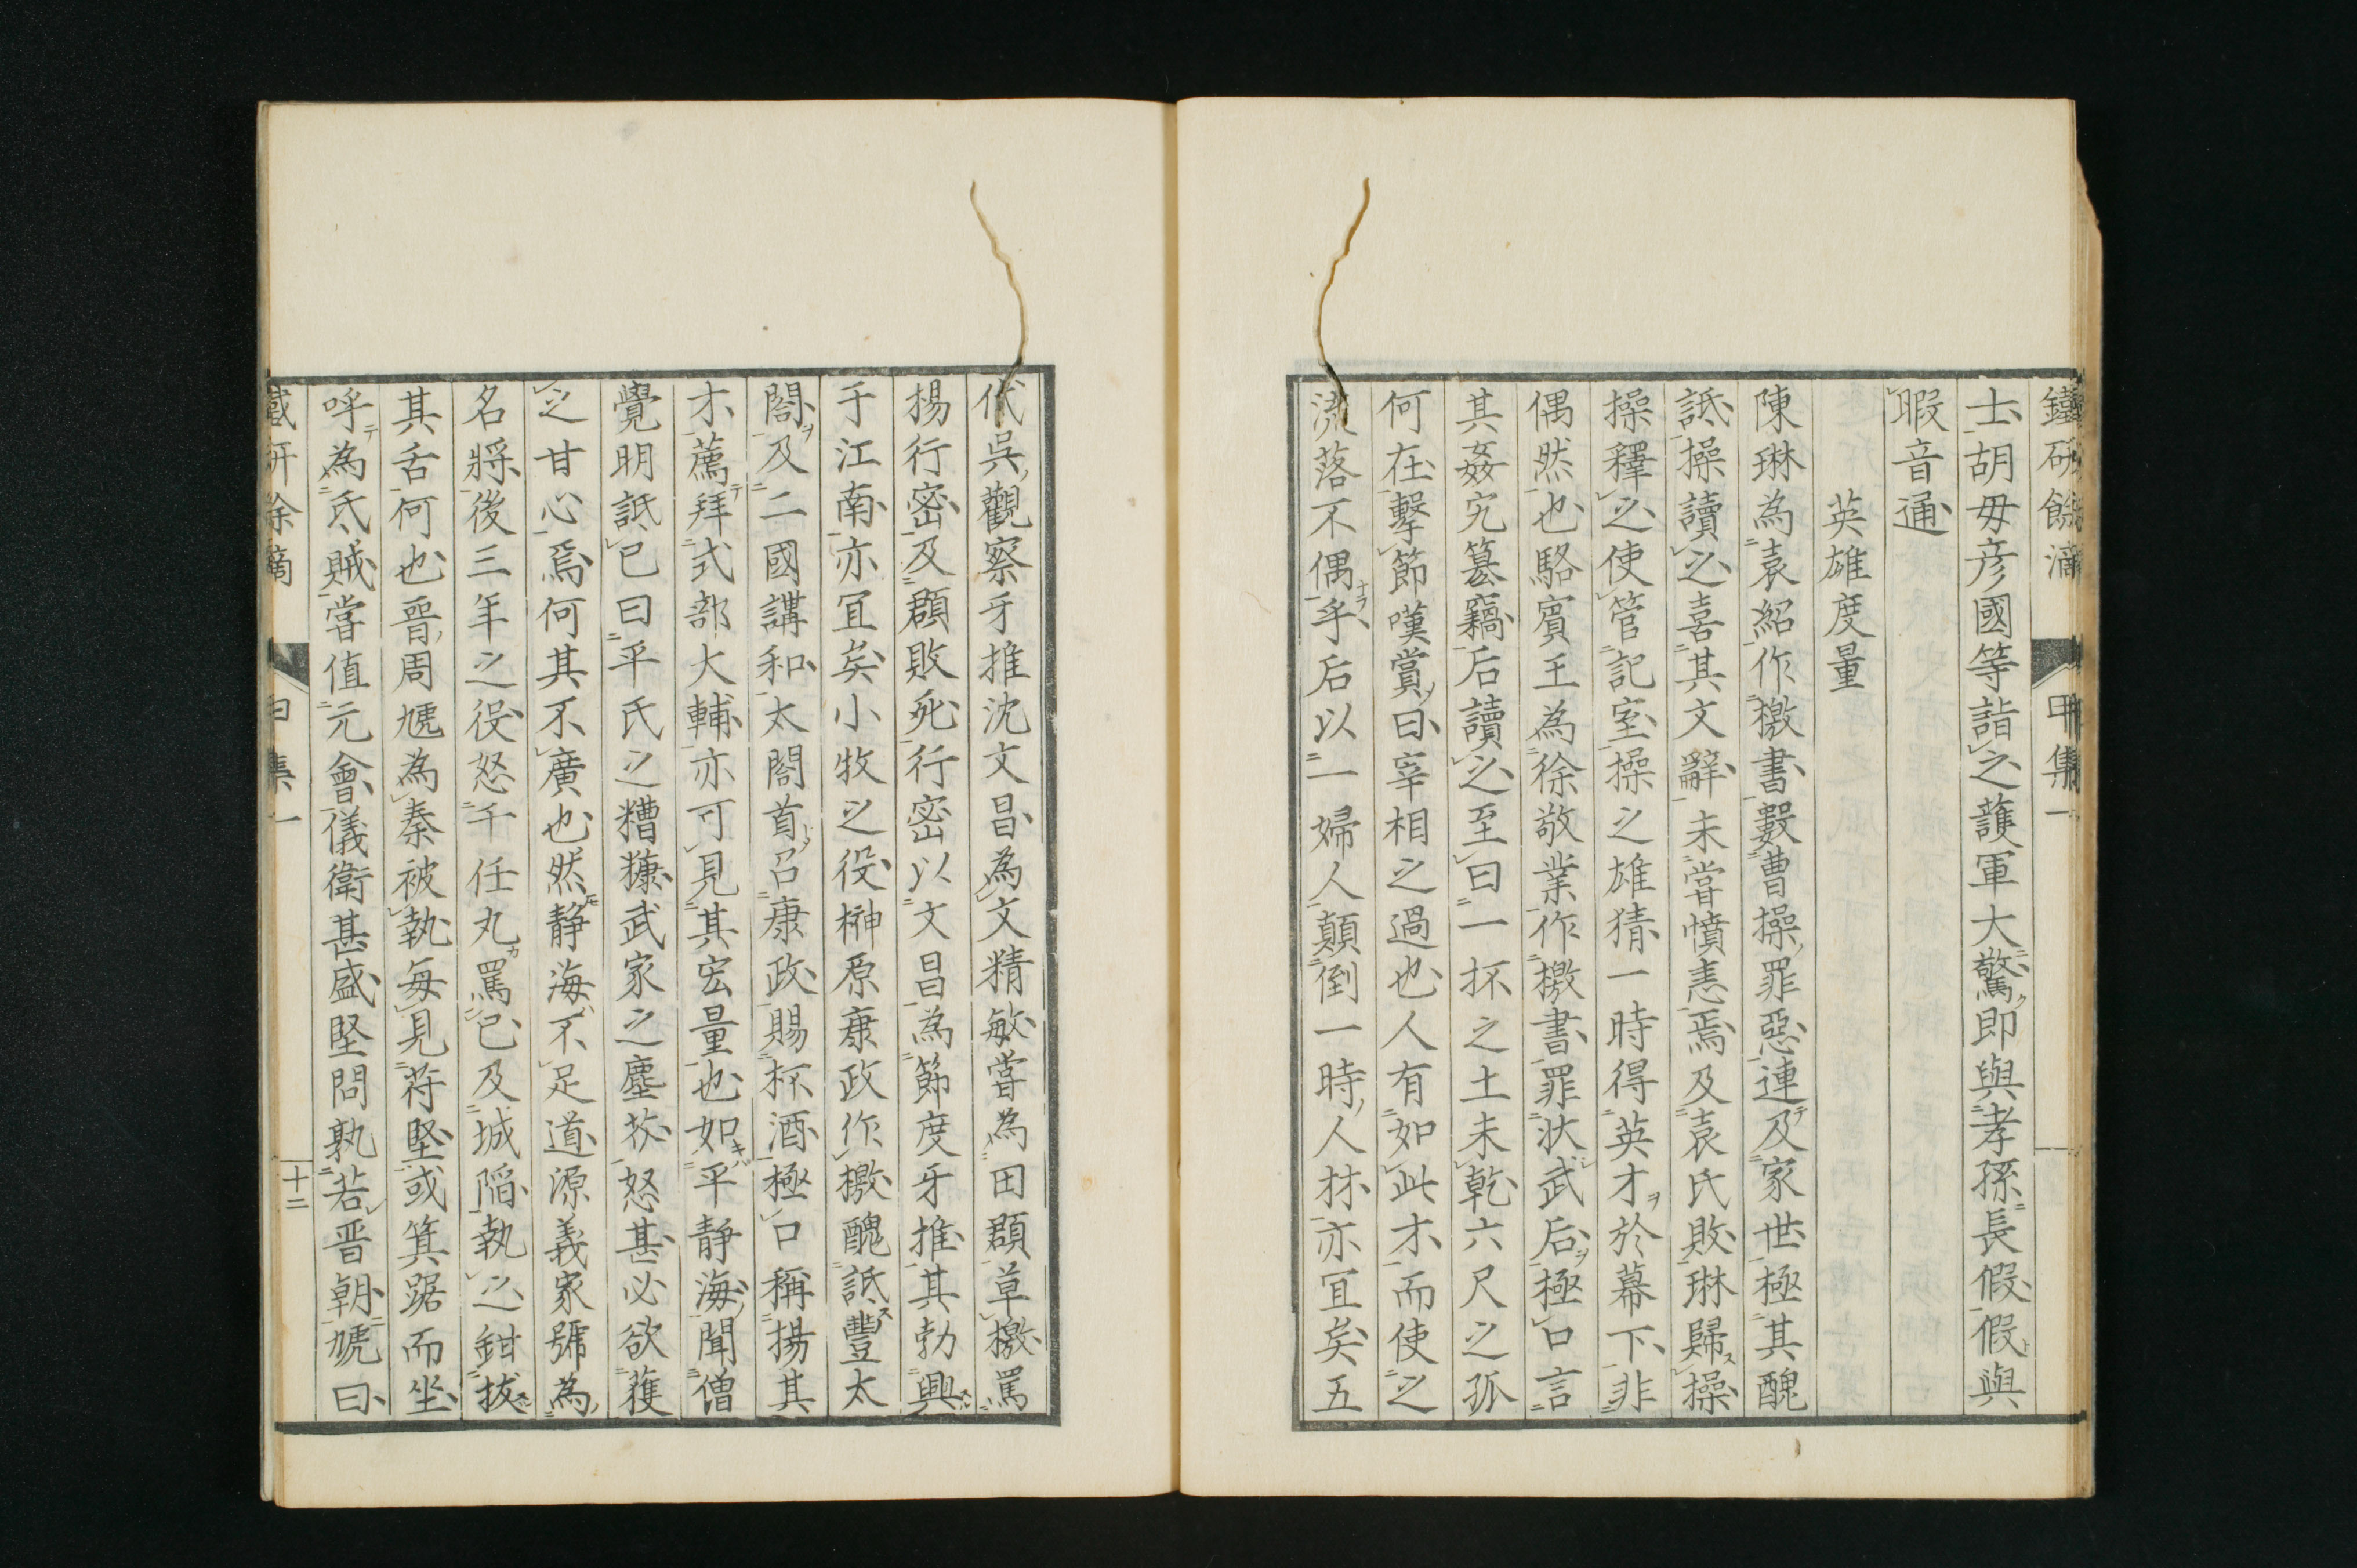 鐵研餘滴 甲集一
士胡毋彦國等詣之護軍大驚即與孝孫長假假與
暇音通
英雄度量
陳琳為袁紹作檄書數曹操罪惡連及家世極其醜
詆操讀之喜其文辭未嘗憤恚焉及袁氏敗琳歸操
操釋之使管記室操之雄猜一時得英才於幕下非
偶然也駱賓王為徐敬業作檄書罪狀武后極口言
其姦宄篡竊后讀之至曰一抔之土未乾六尺之孤
何在擊節嘆賞曰宰相之過也人有如此才而使之
流落不偶乎后以一婦人顛倒一時人材亦宜矣五
代吳觀察牙推沈文昌為文精敏嘗為田頵草檄罵
楊行密及頵敗死行密以文昌為節度牙推其勃興
于江南亦宜矣小牧之役榊原康政作檄醜詆豐太
閤及二國講和太閤首召康政賜杯酒極口稱揚其
才薦拜式部大輔亦可見其宏量也如平靜海聞僧
覺明詆已曰平氏之糟糠武家之塵芥怒甚必欲獲
之甘心焉何其不廣也然靜海不足道源義家號為
名將後三年之役怒千任丸罵已及城陷執之鉗拔
其舌何也晉周虓為秦被執每見苻堅或箕踞而坐
呼為氐賊嘗值元會儀衛甚盛堅問孰若晋朝虓曰
十二